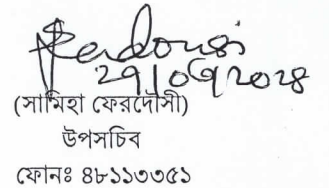 Ferdousi
29/09/2024
(সামিহা ফেরদৌসী)
উপসচিব
ফোনঃ ৪৮১১৩৩৫১